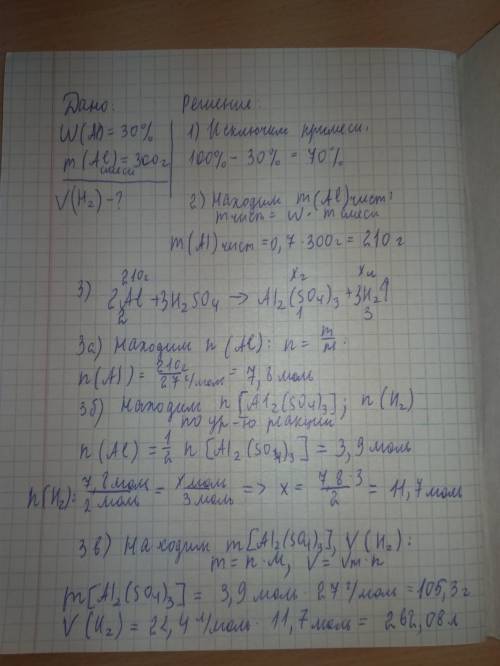 Дано: Решение:
W(Al)=30% 1) Исключим примеси:
m(Al)смеси=300г 100% - 30% = 70%
V(H₂)-? 2) Находим m(Al)чист:
mчист = W · mсмеси
m(Al)чист=0,7·300г=210г
210г xг xл
3) 2Al+3H₂SO₄ → Al₂(SO₄)₃+3H₂↑
2 1 3
3а) Находим n(Al): n = m/M.
n(Al) = 210г/27г/моль = 7,8моль
3б) Находим n[Al₂(SO₄)₃]; n(H₂)
по ур-ю реакции
n(Al) = 1/2 n[Al₂(SO₄)₃] = 3,9моль
n(H₂): 7,8моль/2моль = xмоль/3моль => x = 7,8·3/2 = 11,7моль
3в) Находим m[Al₂(SO₄)₃], V(H₂):
m = n·M, V = Vm·n
m[Al₂(SO₄)₃] = 3,9моль · 27г/моль =105,3г
V(H₂) = 22,4л/моль · 11,7моль = 262,08л